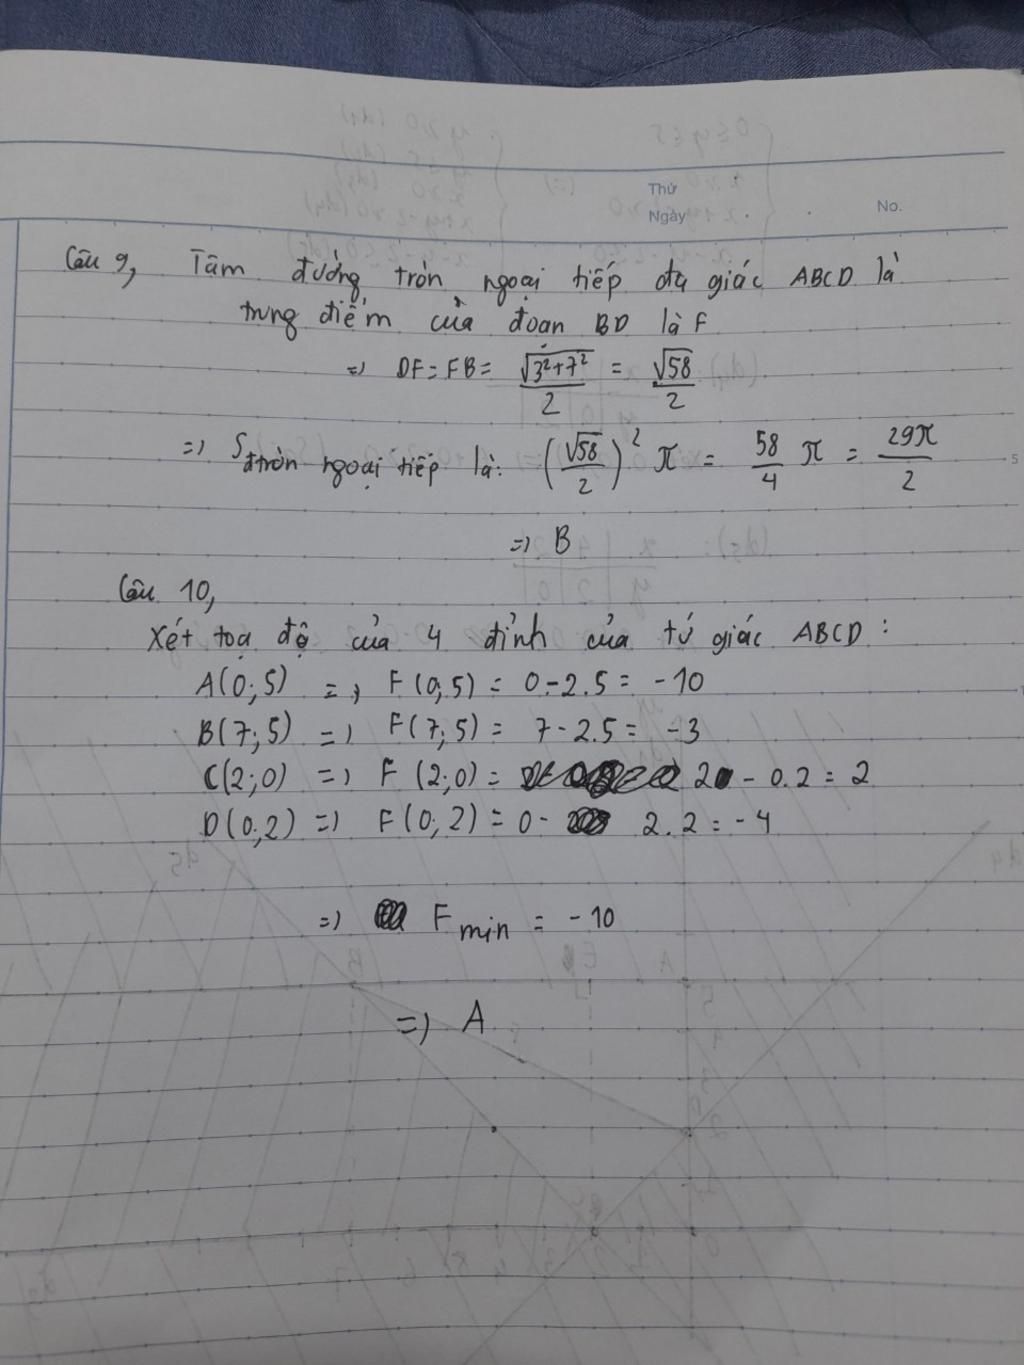 Thứ
Ngày
No.
Câu 9, Tâm đường tròn ngoại tiếp đa giác ABCD là
trung điểm của đoạn BD là F
=> DF = FB = √(3²+7²)/2 = √58/2
=> S đtròn ngoại tiếp là: (√58/2)² π = 58/4 π = 29π/2
=> B
5
Câu 10,
Xét toạ độ của 4 đỉnh của tứ giác ABCD:
A(0;5) => F(0,5) = 0-2.5 = -10
B(7;5) => F(7;5) = 7-2.5 = -3
C(2;0) => F(2;0) = 2 - 0.2 = 2
D(0;2) => F(0;2) = 0- 2.2 = -4
=> F min = -10
=> A